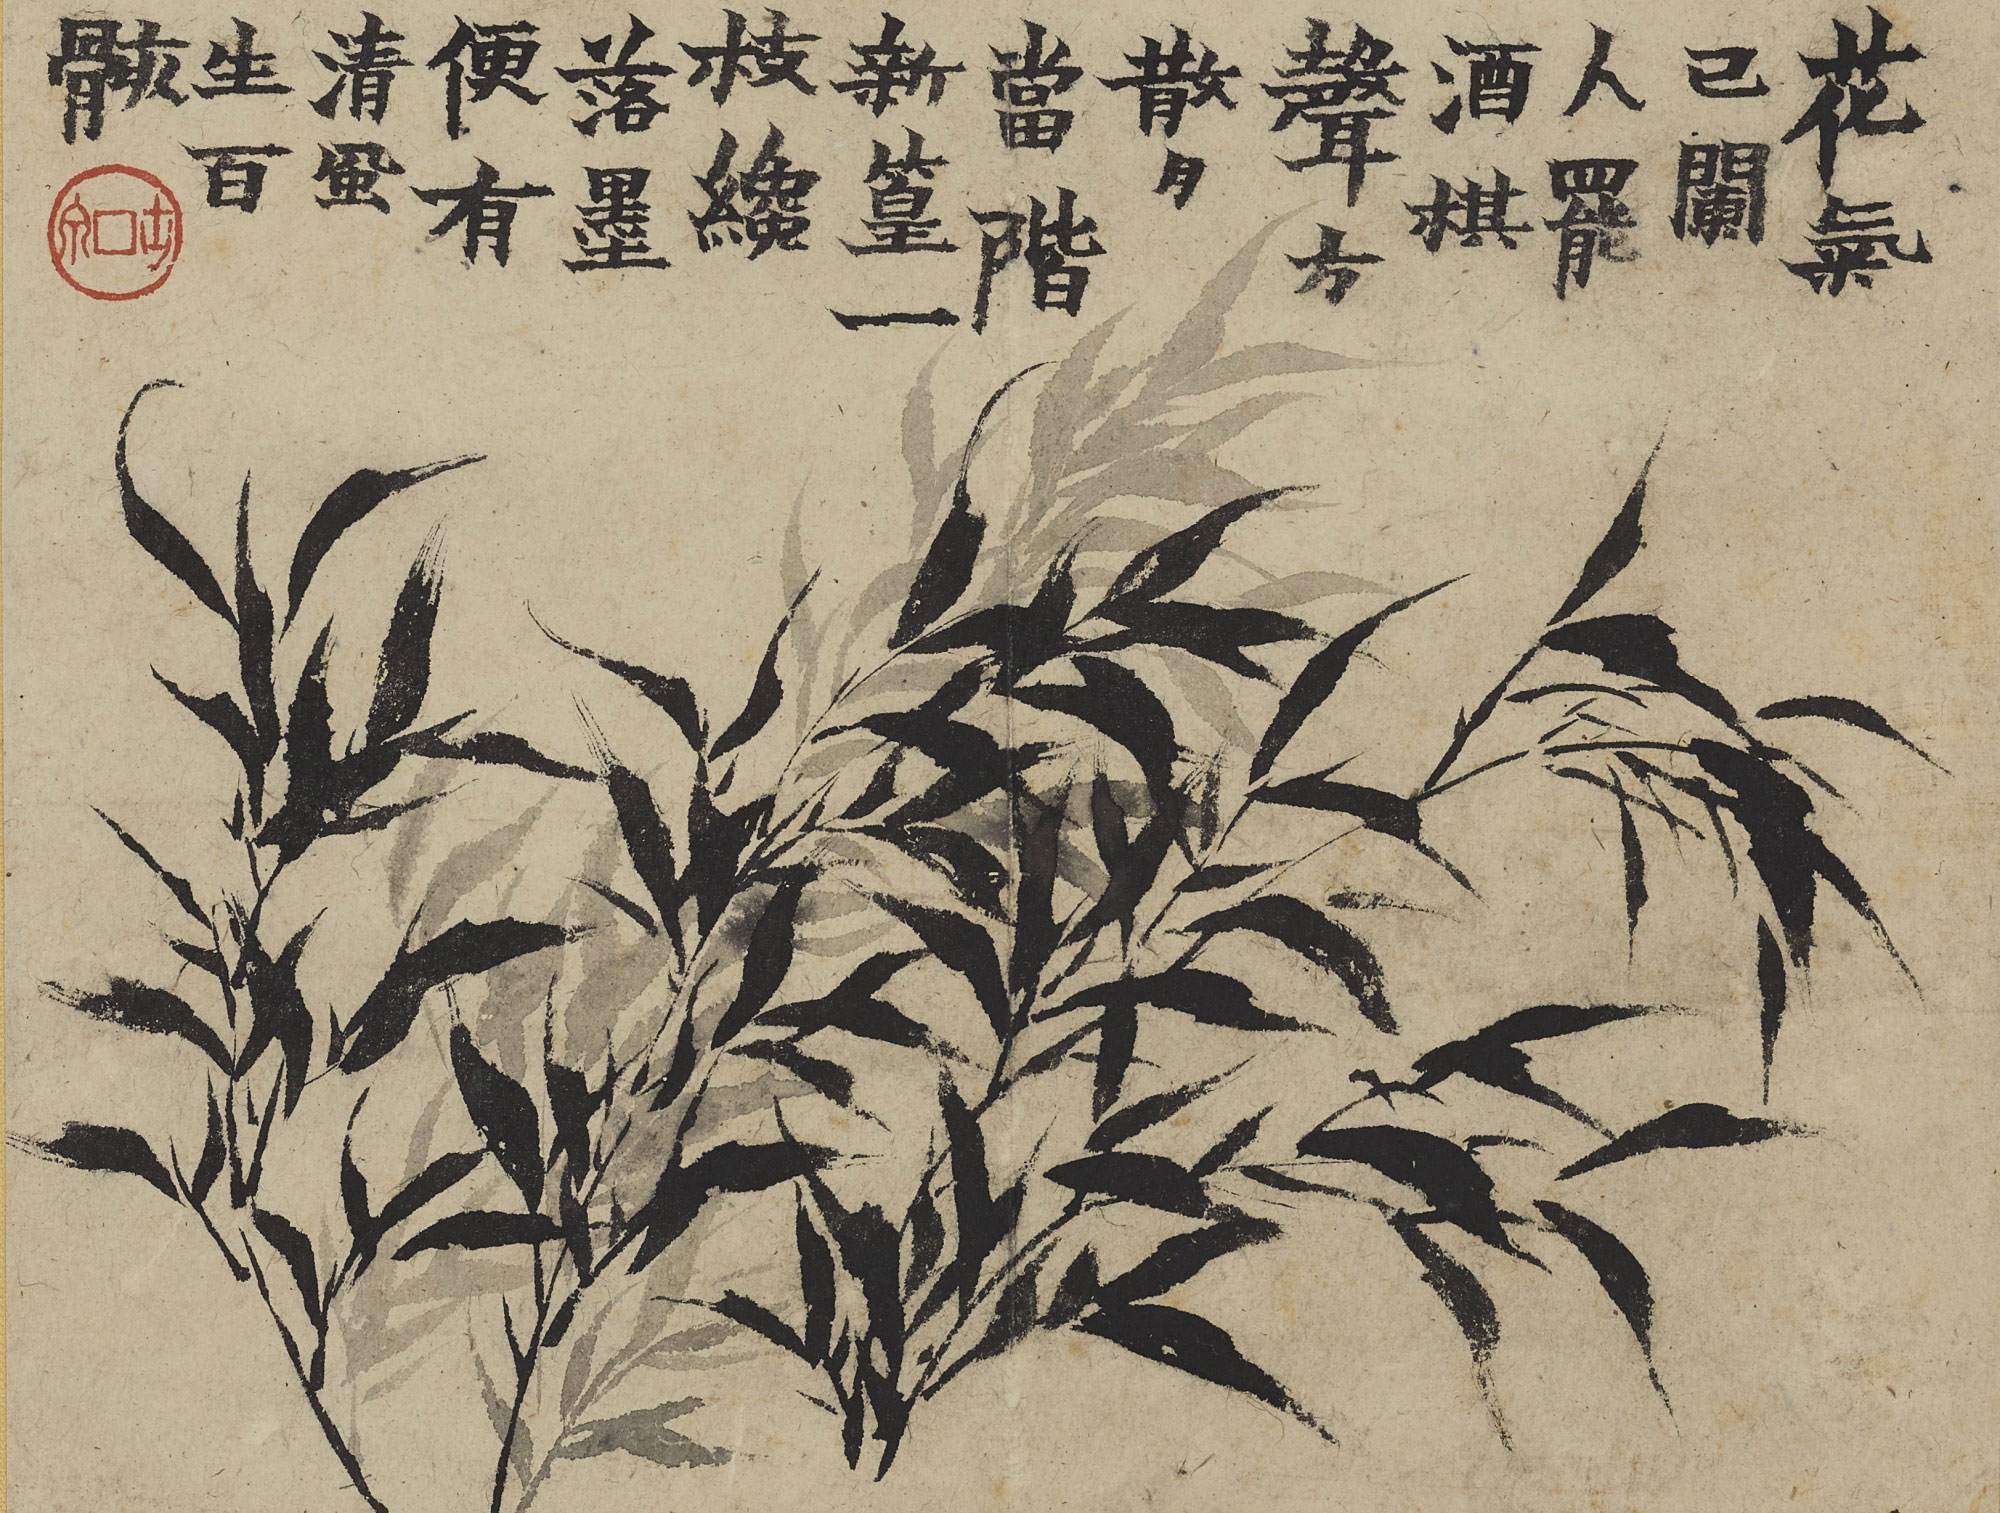 花氣
已闌
人罷
酒棋
聲方
散夕
當階
新篁一
枝纔
落墨
便有
清風
生百
骸